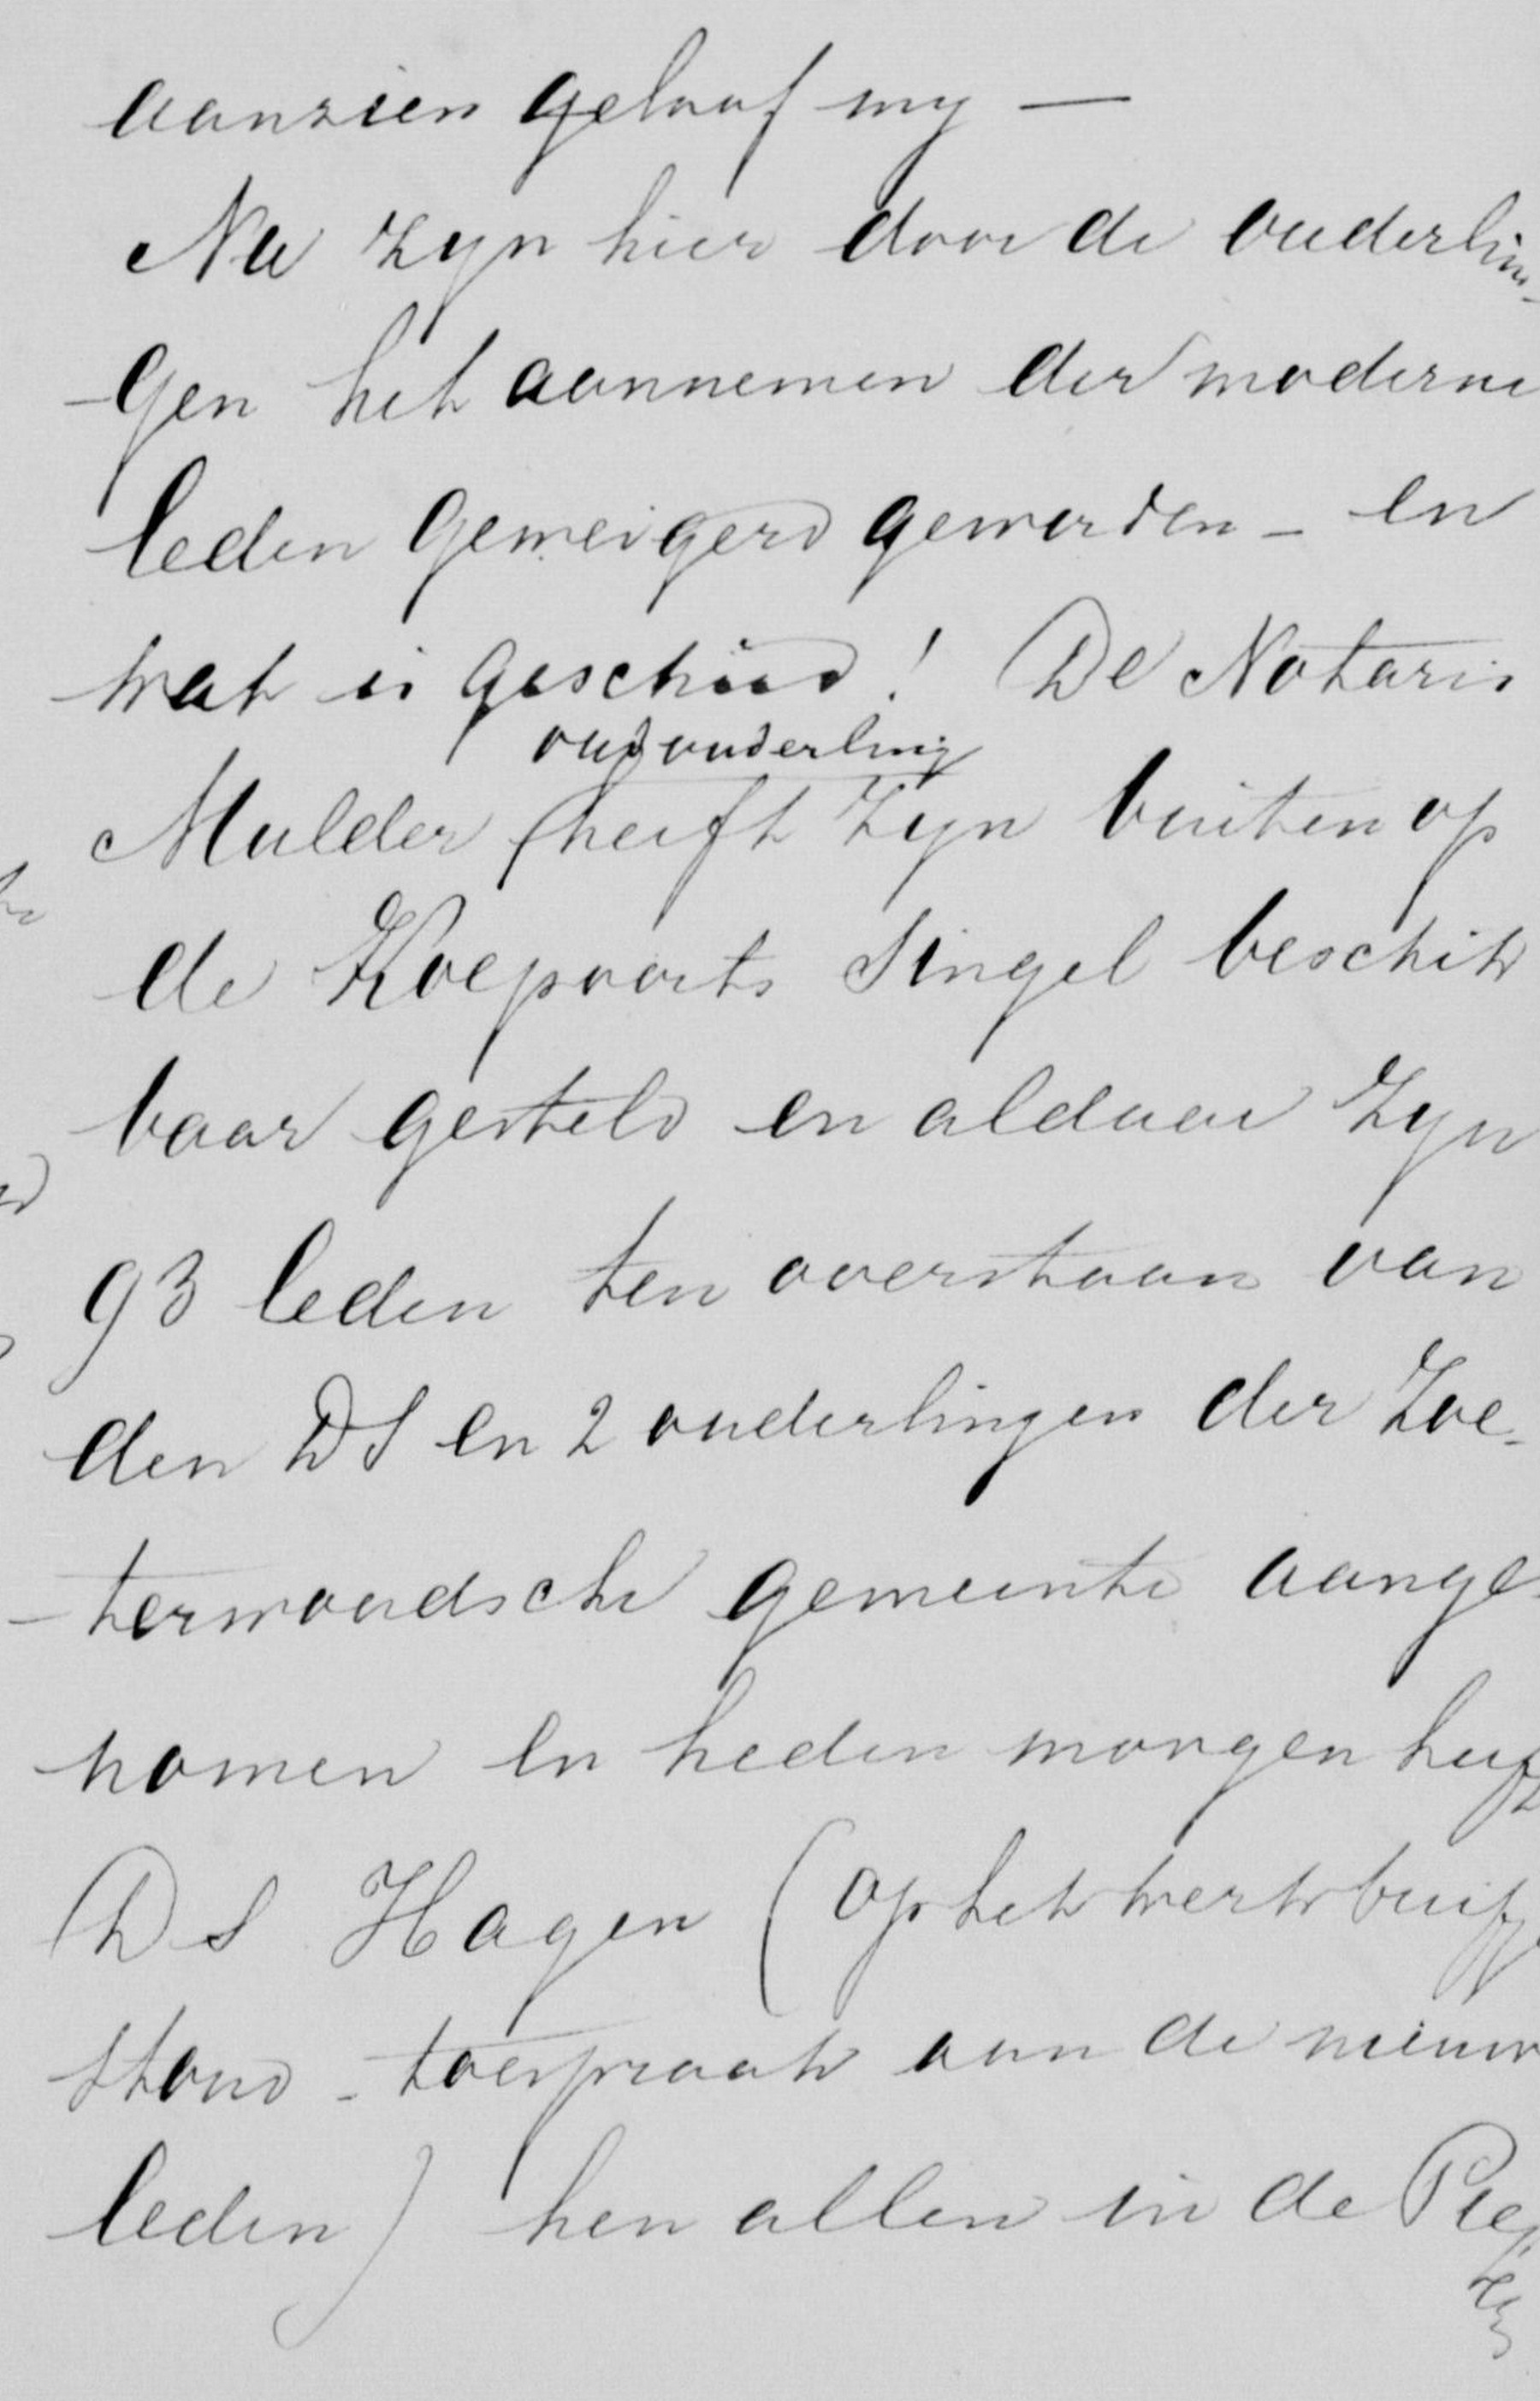 aanzien geloof my —
Nu zyn hier door de ouderlin-
-gen het aannemen der moderne
leden geweigerd geworden - en
wat is geschied! De Notaris
oud ouderling
Mulder heeft zyn buiten op
de Koepoorts Singel beschik
baar gesteld en aldaar zyn
93 leden ten overstaan van
den DS en 2 ouderlingen der Zoe-
-terwoudsche gemeente aange
nomen en heden morgen heeft
DS Hagen (op het
stond - toespraak aan de nieuw
leden) hen allen in de